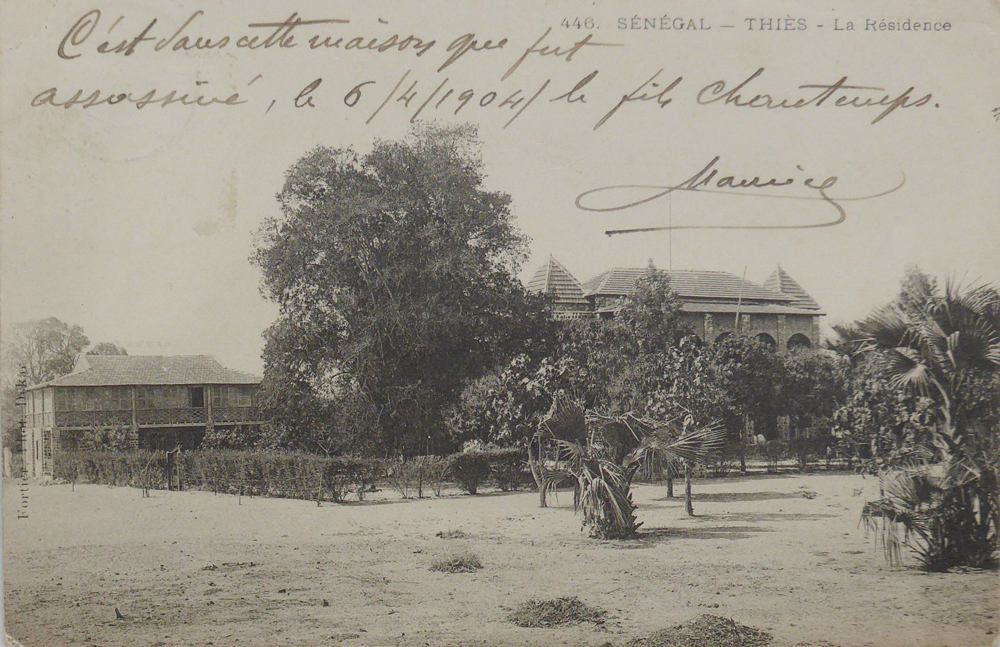 446. SÉNÉGAL — THIÈS - La Résidence
C'est dans cette maison que fut
assassiné, le 6/4/1904/ le fils Chautemps.
Maurice
Fortier Phot. Dakar